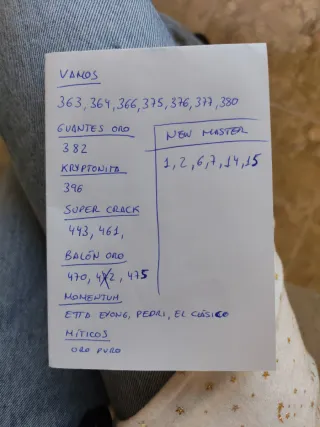 VAMOS
363, 364, 366, 375, 376, 377, 380
GUANTES ORO
382
KRYPTONITA
396
SUPER CRACK
443, 461,
BALÓN ORO
470, 472, 475
MOMENTUM
ETTA EYONG, PEDRI, EL CLÁSICO
MÍTICOS
ORO PURO
NEW MASTER
1, 2, 6, 7, 14, 15